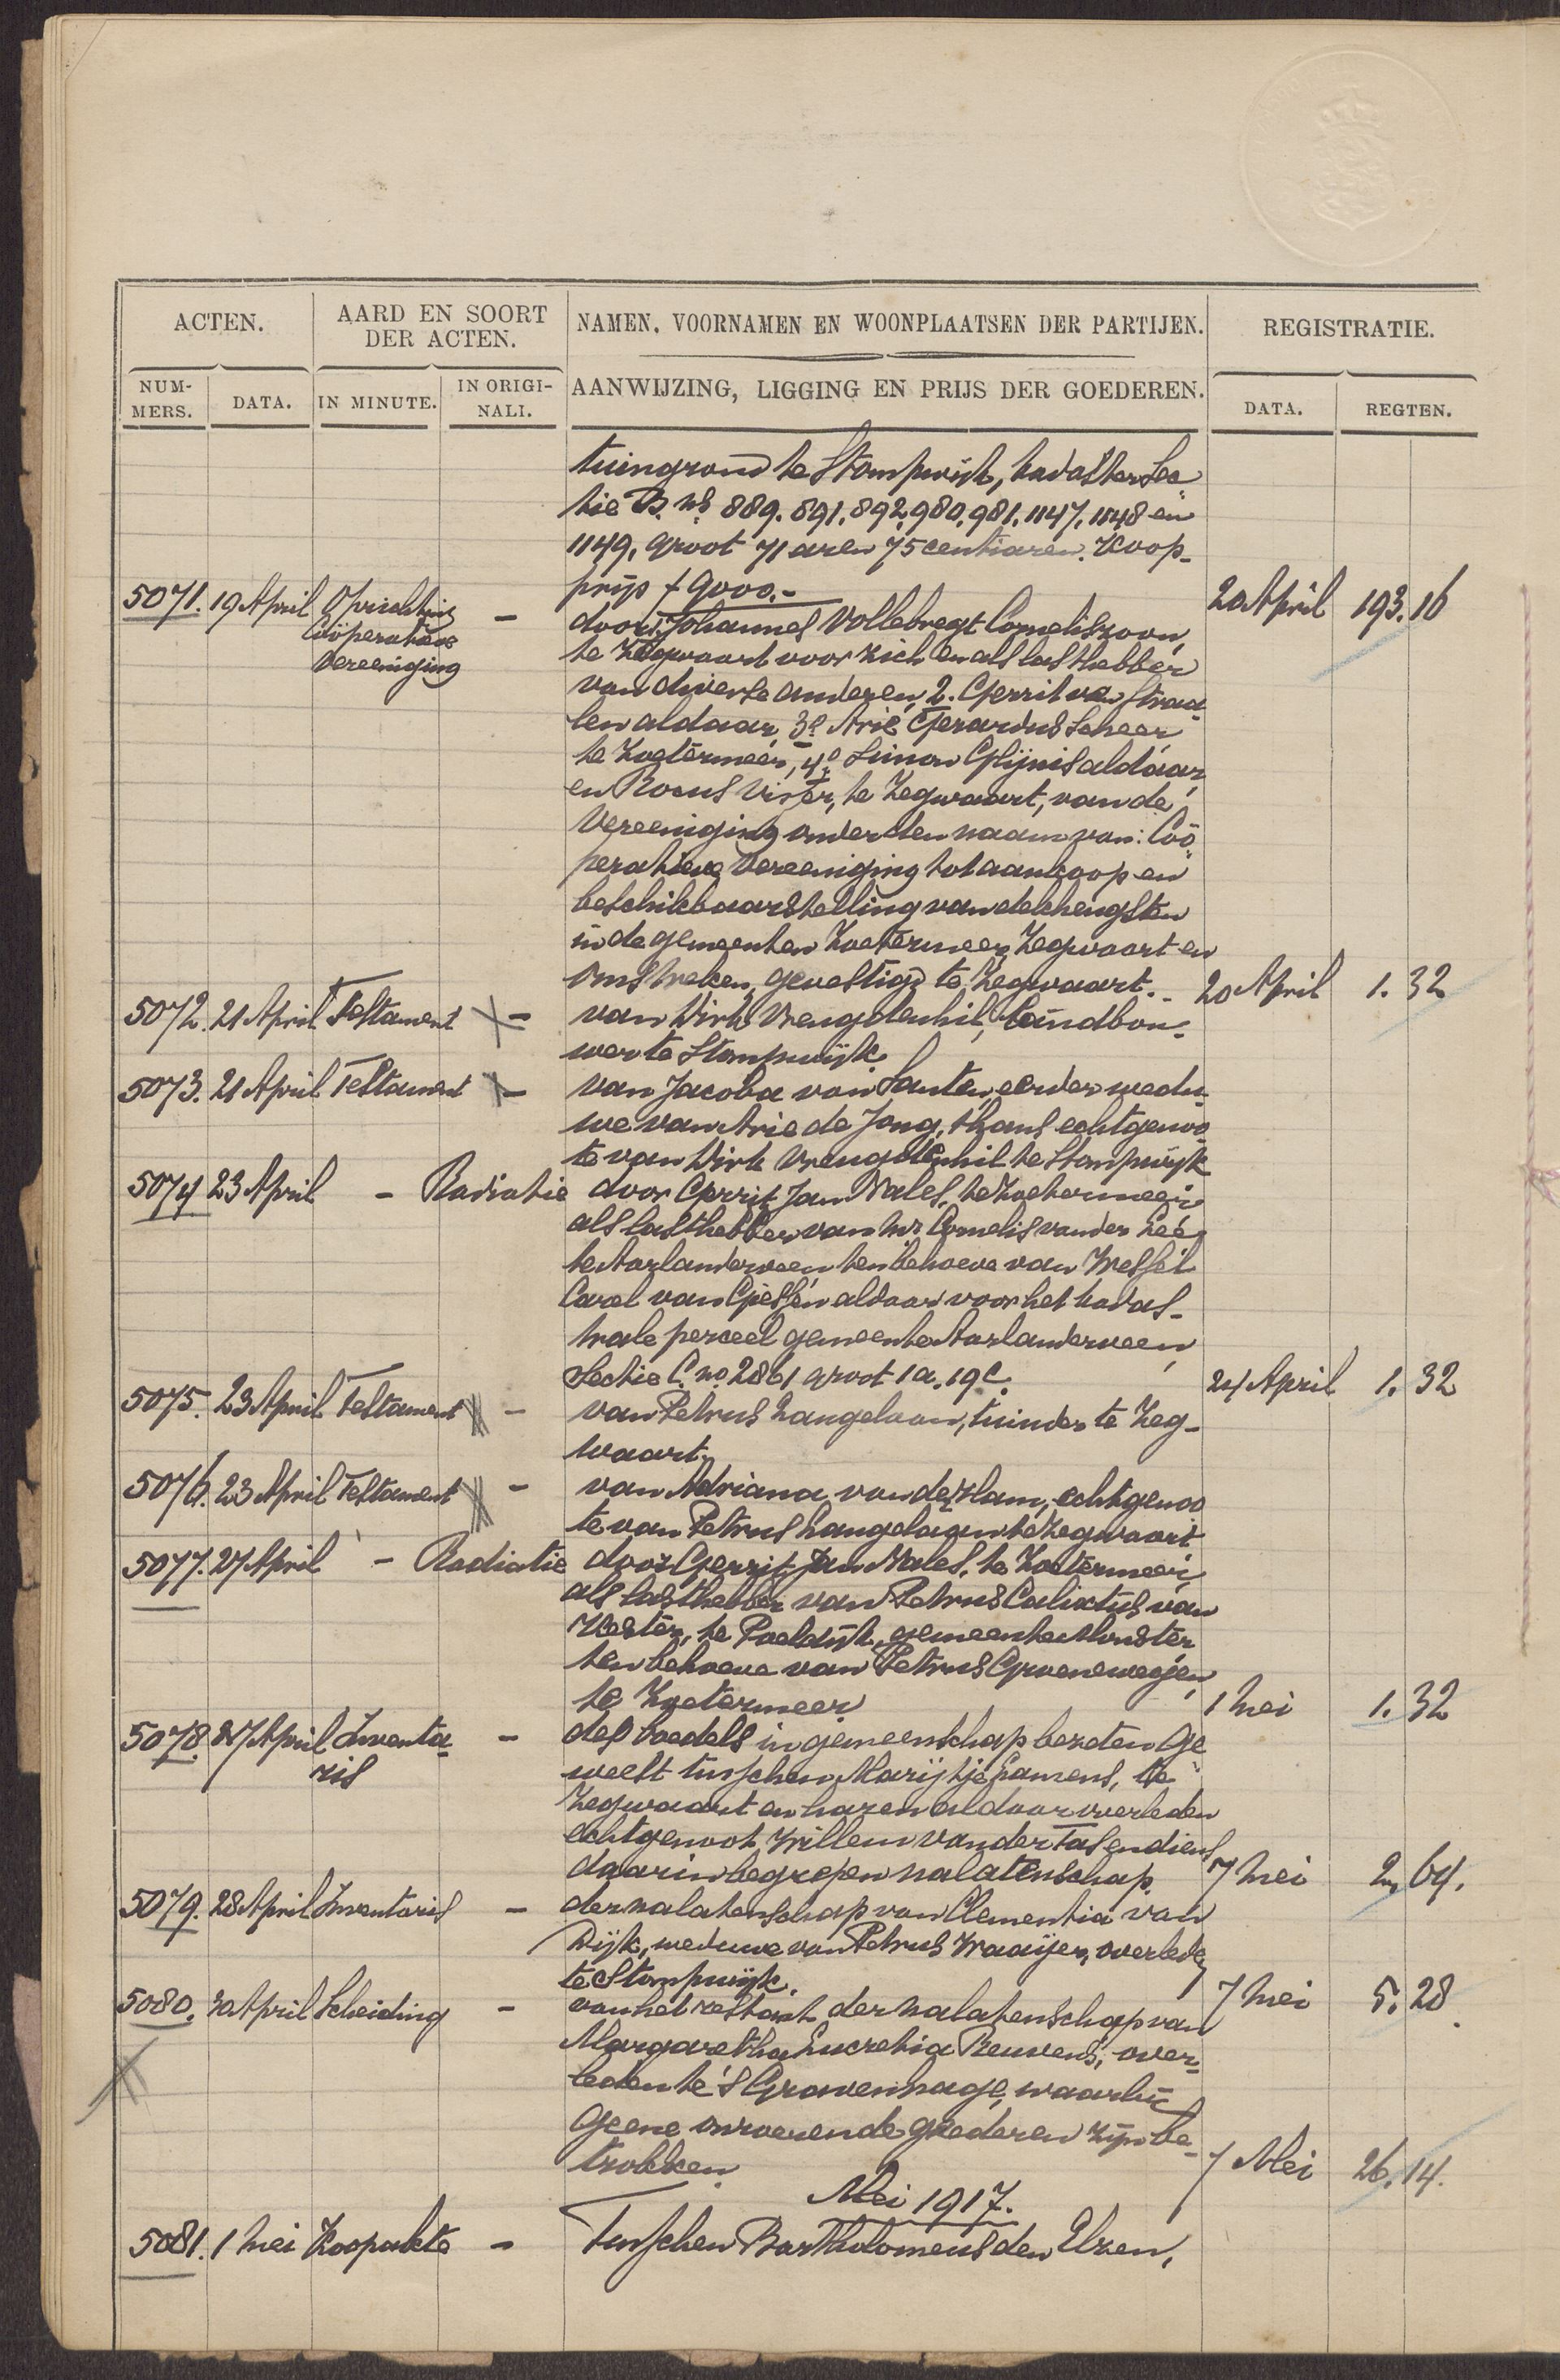 ACTEN.
AARD EN SOORT
DER ACTEN.
NAMEN, VOORNAMEN EN WOONPLAATSEN DER PARTIJEN.
REGISTRATIE.
NUM-
MERS.
DATA.
IN MINUTE.
IN ORIGI-
NALI.
AANWIJZING, LIGGING EN PRIJS DER GOEDEREN.
DATA.
REGTEN.
tuingrond te Stompwijk, kadaster Sec
tie B. nos 889. 891. 892. 980. 981. 1147. 1148 en
1149, groot 71 aren 75 centiaren. Koop-
prijs f 9000.- 20 April 193.16
5071. 19 April Oprichting - door 1. Johannes Vollebregt Corneliszoon,
Coöperatieve te Zegwaart voor zich en als lasthebber
Vereeniging van diverse anderen, 2. Gerrit van Straa
len aldaar, 3e Arie Gerardus Scheer
te Zoetermeer, 4o Simon Glijnis aldaar
en Rocus Visser, te Zegwaart, van de
Vereeniging onder den naam van: Coö
peratieve Vereeniging tot aankoop en
beschikbaarstelling van dekhengsten
in de gemeenten Zoetermeer, Zegwaart en
Omstreken, gevestigd te Zegwaart. - 20 April 1.32
5072. 21 April Testament - van Dirk Vreugdenhil, Landbou-
wer te Stompwijk.
5073. 21 April Testament - van Jacoba van Santen, eerder wedu-
we van Arie de Jong, thans echtgenoo-
te van Dirk Vreugdenhil te Stompwijk
5074 23 April - Radiatie door Gerrit Jan Nales, te Zoetermeer
als lasthebber van Mr. Cornelis van der Lee
te Aarlanderveen ten behoeve van Wessel
Carel van Giessen aldaar voor het kadas-
trale perceel gemeente Aarlanderveen
Sectie C. no. 2861 groot 1 a. 19 c. 24 April 1.32
5075. 23 April Testament - van Petrus Langelaan, tuinder te Zeg-
waart.
5076. 23 April Testament - van Adriana van der Ham, echtgenoo
te van Petrus Langelaan te Zegwaart
5077. 27 April - Radiatie door Gerrit Jan Nales, te Zoetermeer
als lasthebber van Petrus Calixtus van
Kester, te Poeldijk, gemeente Monster
ten behoeve van Petrus Groenewegen
te Zoetermeer 1 Mei 1.32
5078. 27 April Inventa- - des boedels in gemeenschap bezeten ge
ris weest tusschen Marijtje Camens, te
Zegwaart en haren aldaar overleden
echtgenoot Willem van der Tas en diens
daarin begrepen nalatenschap. 7 Mei 2,64.
5079. 28 April Inventaris - der nalatenschap van Clementia van
Dijk, weduwe van Petrus Waaijer, overleden
te Stompwijk. 7 Mei 5.28
5080. 30 April Scheiding - van het restant der nalatenschap van
Margaretha Lucretia Reuvens, over-
leden te 's Gravenhage, waarbij
geene onroerende goederen zijn be-
trokken. 7 Mei 26.14.
Mei 1917.
5081. 1 Mei Koopakte - Tusschen Bartholomeus den Elzen,